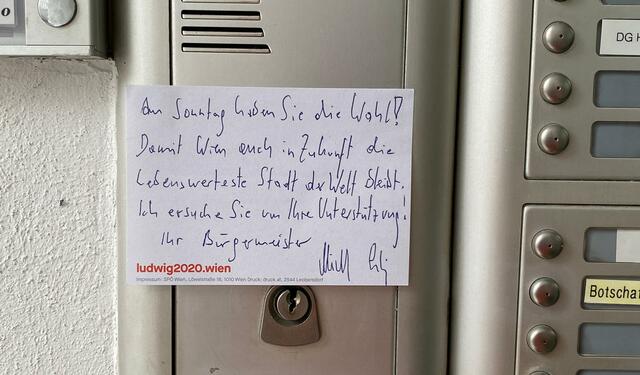 DG H
Am Sonntag haben Sie die Wahl!
Damit Wien auch in Zukunft die
Lebenswerteste Stadt der Welt bleibt.
Ich ersuche Sie um Ihre Unterstützung!
Ihr Bürgermeister
ludwig2020.wien
Impressum: SPÖ Wien, Löwelstraße 18, 1010 Wien Druck: druck.at, 2544 Leobersdorf
Botschaf